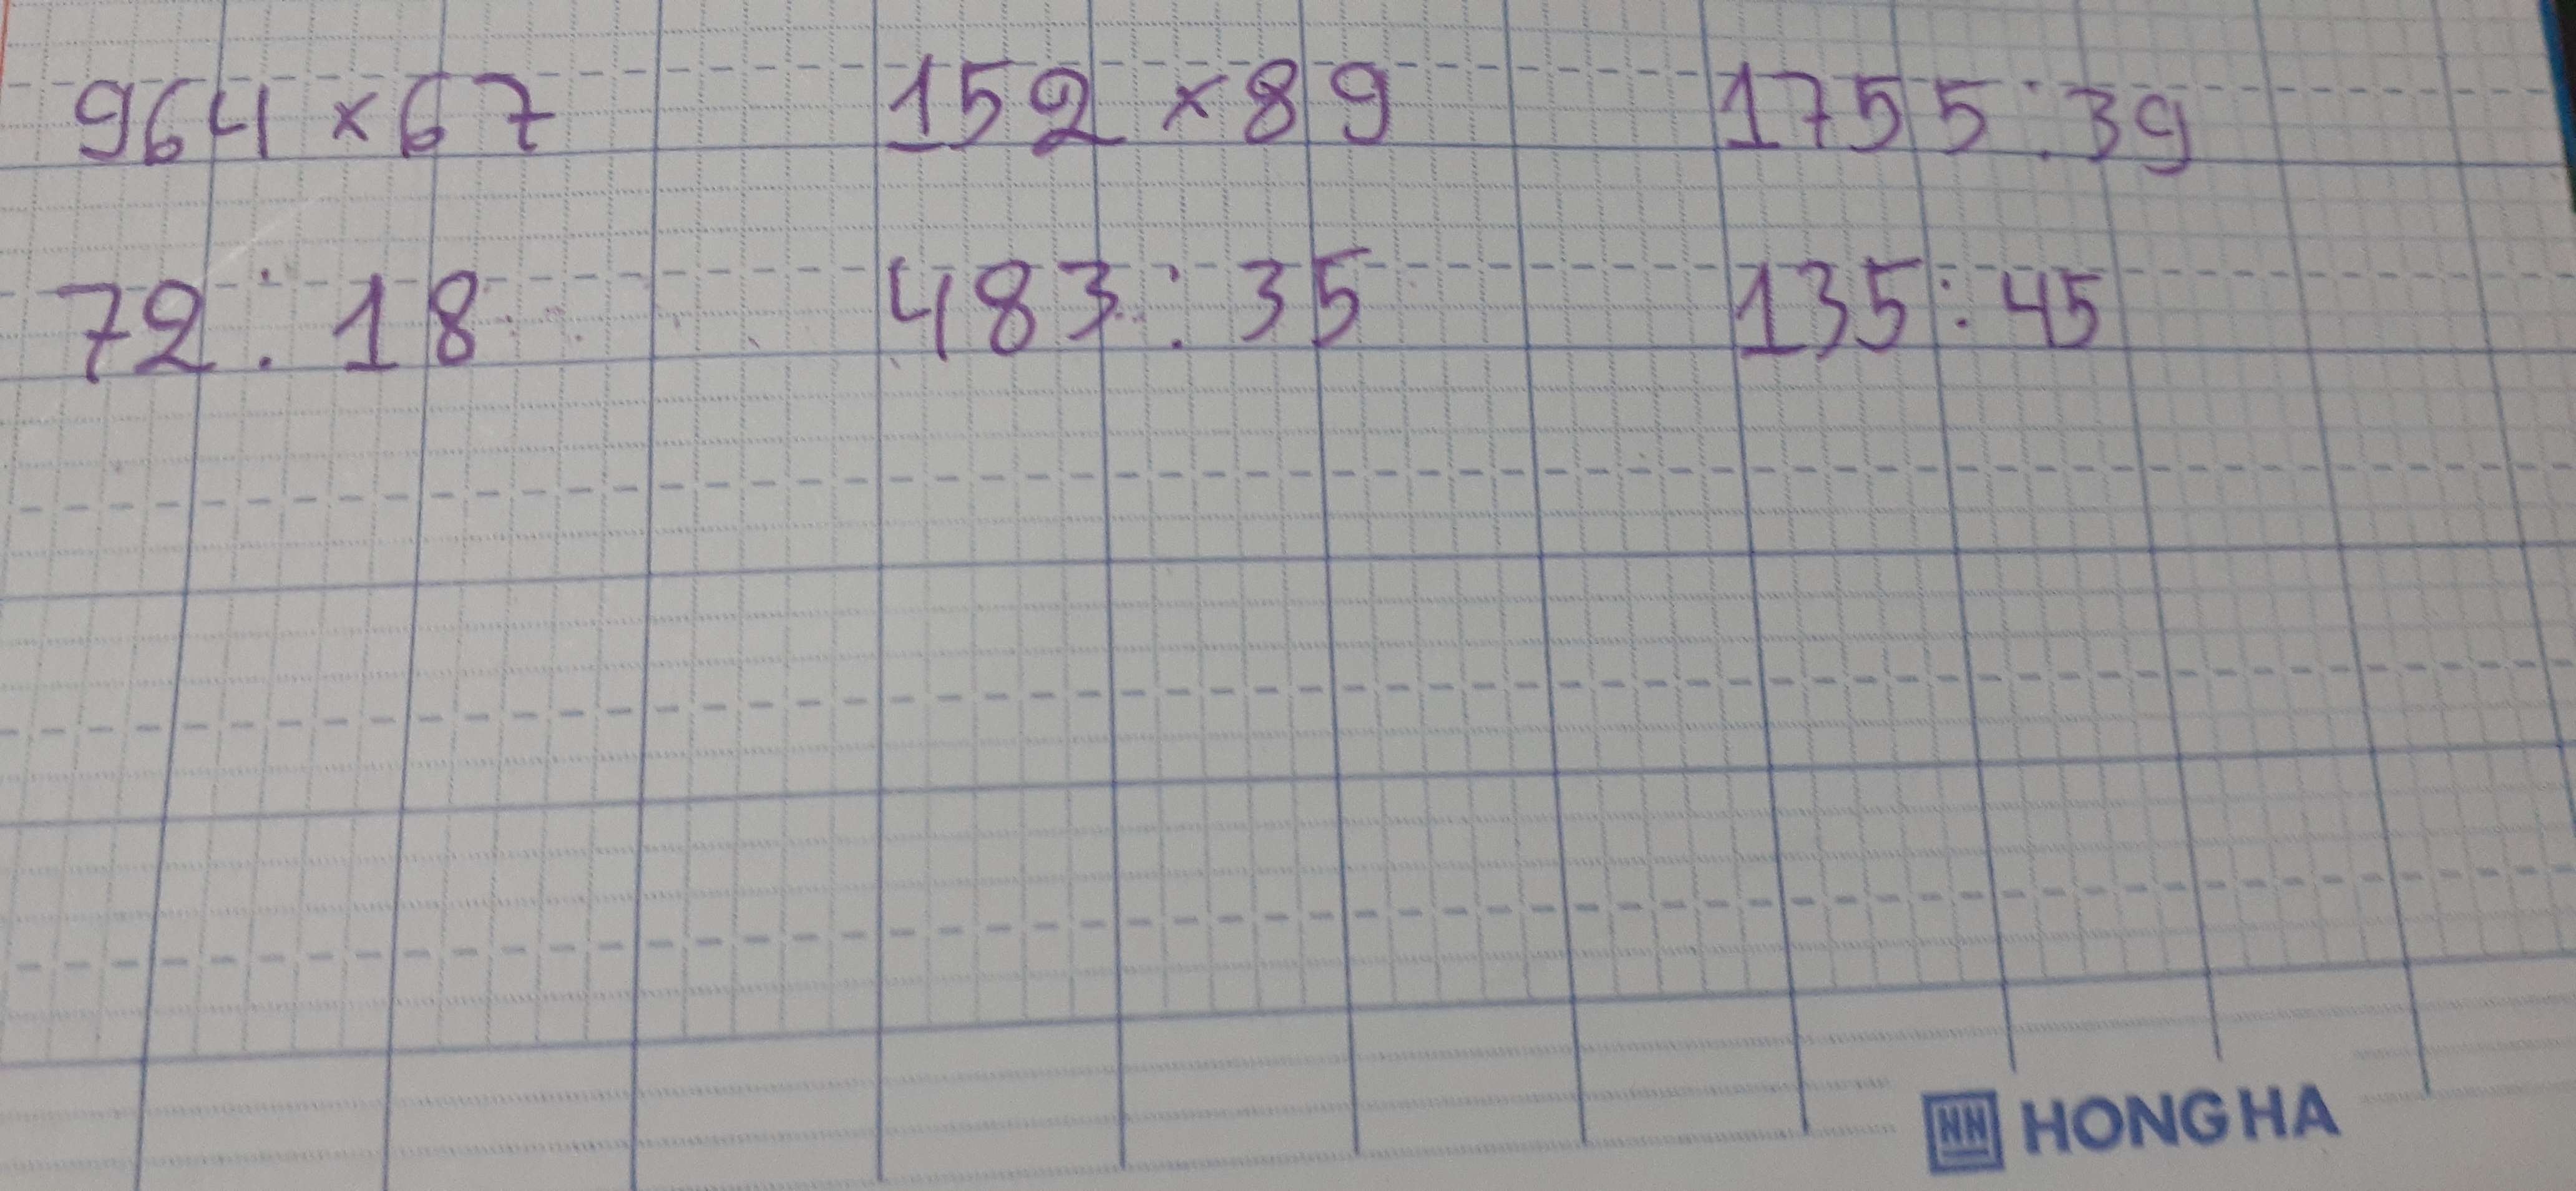 964 × 67 152 × 89 1755 : 39
72 : 18 483 : 35 135 : 45
HONG HA